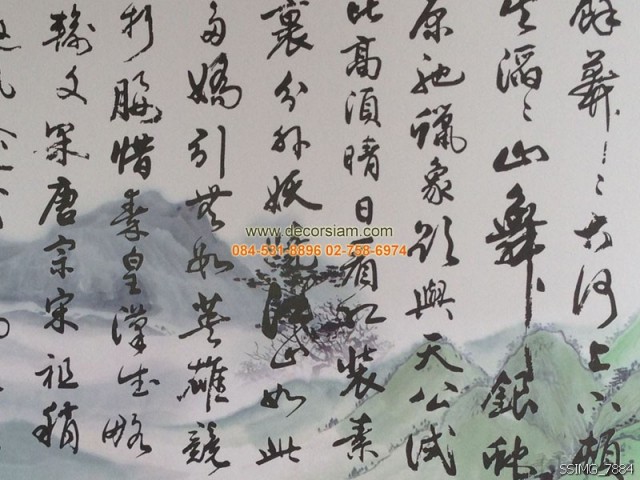 餘莽〻大河上下頓
失滔〻山舞銀蛇
原馳臘象欲與天公試
比高須晴日看红裝素
裹分外妖嬈江山如此
多嬌引無數英雄競
折腰惜秦皇漢武略
輸文采唐宗宋祖稍
www.decorsiam.com
084-531-8896 02-758-6974
SSIMG_7884